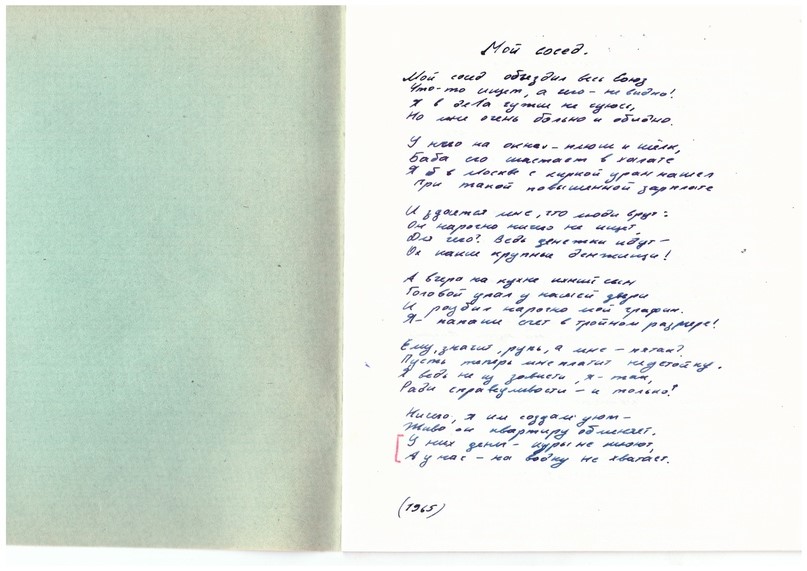 Мой сосед.
Мой сосед объездил весь Союз
Что-то ищет, а чего - не видно!
Я в дела чужие не суюсь,
Но мне очень больно и обидно.
У него на окнах - плюш и шёлк,
Баба его шастает в халате
Я б в Москве с киркой уран нашел
При такой повышенной зарплате
И здается мне, что люди врут:
Он нарочно ничего не ищет,
Для чего? Ведь денежки идут -
Ох какие крупные деньжищи!
А вчера на кухне ихний сын
Головой упал у нашей двери
И разбил нарочно мой графин.
Я - папаше счет в тройном размере!
Ему, значит, рупь, а мне - пятак?
Пусть теперь мне платит неустойку.
Я ведь не из зависти, я - так,
Ради справедливости - и только!
Ничего, я им создам уют -
Живо он квартиру обменяет.
У них денег - куры не клюют,
А у нас - на водку не хватает.
(1965)